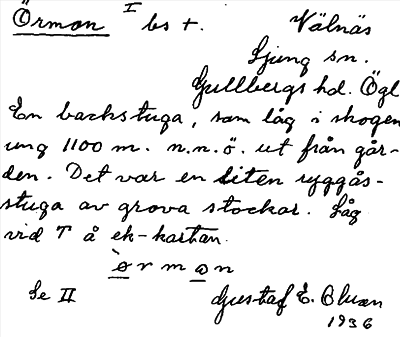 Örman I bs +. Välnäs
Ljung sn.
Gullbergs hd. Ögl
En backstuga, som låg i skogen
ung 1100 m. n.n.ö. ut från går-
den. Det var en liten ryggås-
stuga av grova stockar. Låg
vid T å ek-kartan.
ø r m a n
Se II Gustaf E. Bluan
1936